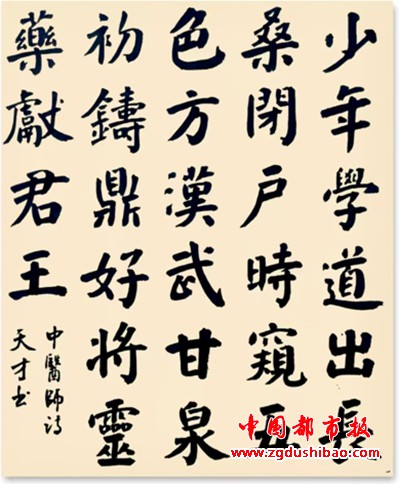 少年學道出長
桑閉戶時窺五
色方漢武甘泉
初鑄鼎好將靈
藥獻君王
中醫師詩
天才书
中國都市報
www.zgdushibao.com